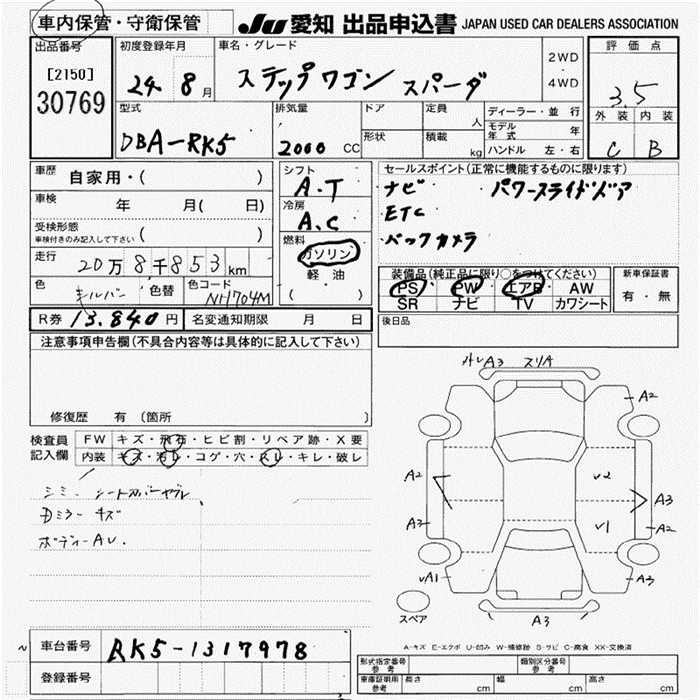 車内保管・守衛保管
JU 愛知 出品申込書 JAPAN USED CAR DEALERS ASSOCIATION
出品番号
[2150]
30769
初度登録年月
24 8月
車名・グレード
ステップワゴン スパーダ
2WD
・
4WD
評価点
3.5
外装 内装
C B
型式
DBA-RK5
排気量
2000 CC
ドア
形状
定員
人
積載
kg
ディーラー・並行
モデル年式 年
ハンドル 左・右
車歴
自家用・( )
車検
年 月( 日)
受検形態
車検付きのみ記入して下さい ( )
走行
20万8千853km
色
シルバー
色替
色コード
NH704M
シフト
A.T
冷房
A.C
燃料
ガソリン
軽油
( )
セールスポイント(正常に機能するものに限ります)
・ナビ ・パワースライドドア
・ETC
・バックカメラ
装備品(純正品に限り○をつけてください)
PS PW エアB AW
SR ナビ TV カワシート
新車保証書
有・無
R券 13,840円
名変通知期限 月 日
後日品
注意事項申告欄(不具合内容等は具体的に記入して下さい)
修復歴 有(箇所 )
検査員記入欄
FW キズ・飛石・ヒビ割・リペア跡・X要
内装 キズ・汚レ・コゲ・穴・スレ・キレ・破レ
シミ シートカバーヤブレ
Dミラーキズ
ボディーAU.
A3 スリA
A2
A2
V2
A3
A3
V1
A2
VA1
A3
A3
スペア
A-キズ E-エクボ U-凹ミ W-補修跡 S-サビ C-腐食 XX-交換済
車台番号
RK5-1317978
登録番号
型式指定番号 参考
類別区分番号 参考
車庫証明用 参考
長さ cm 幅 cm 高さ cm